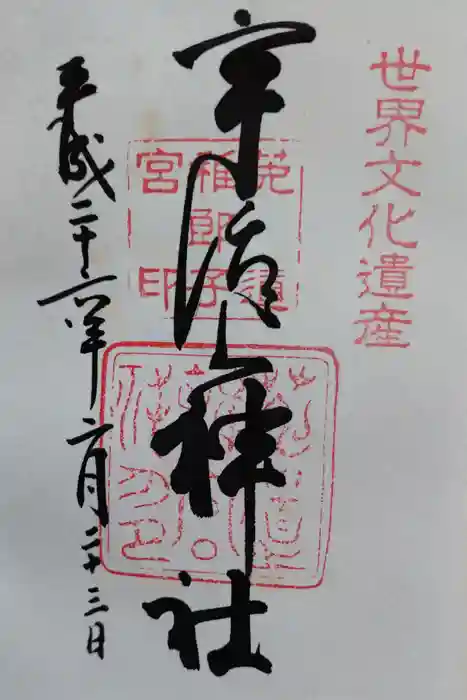 世界文化遺産
宇治上神社
菟道
稚郎子
宮印
平成二十六年六月二十三日